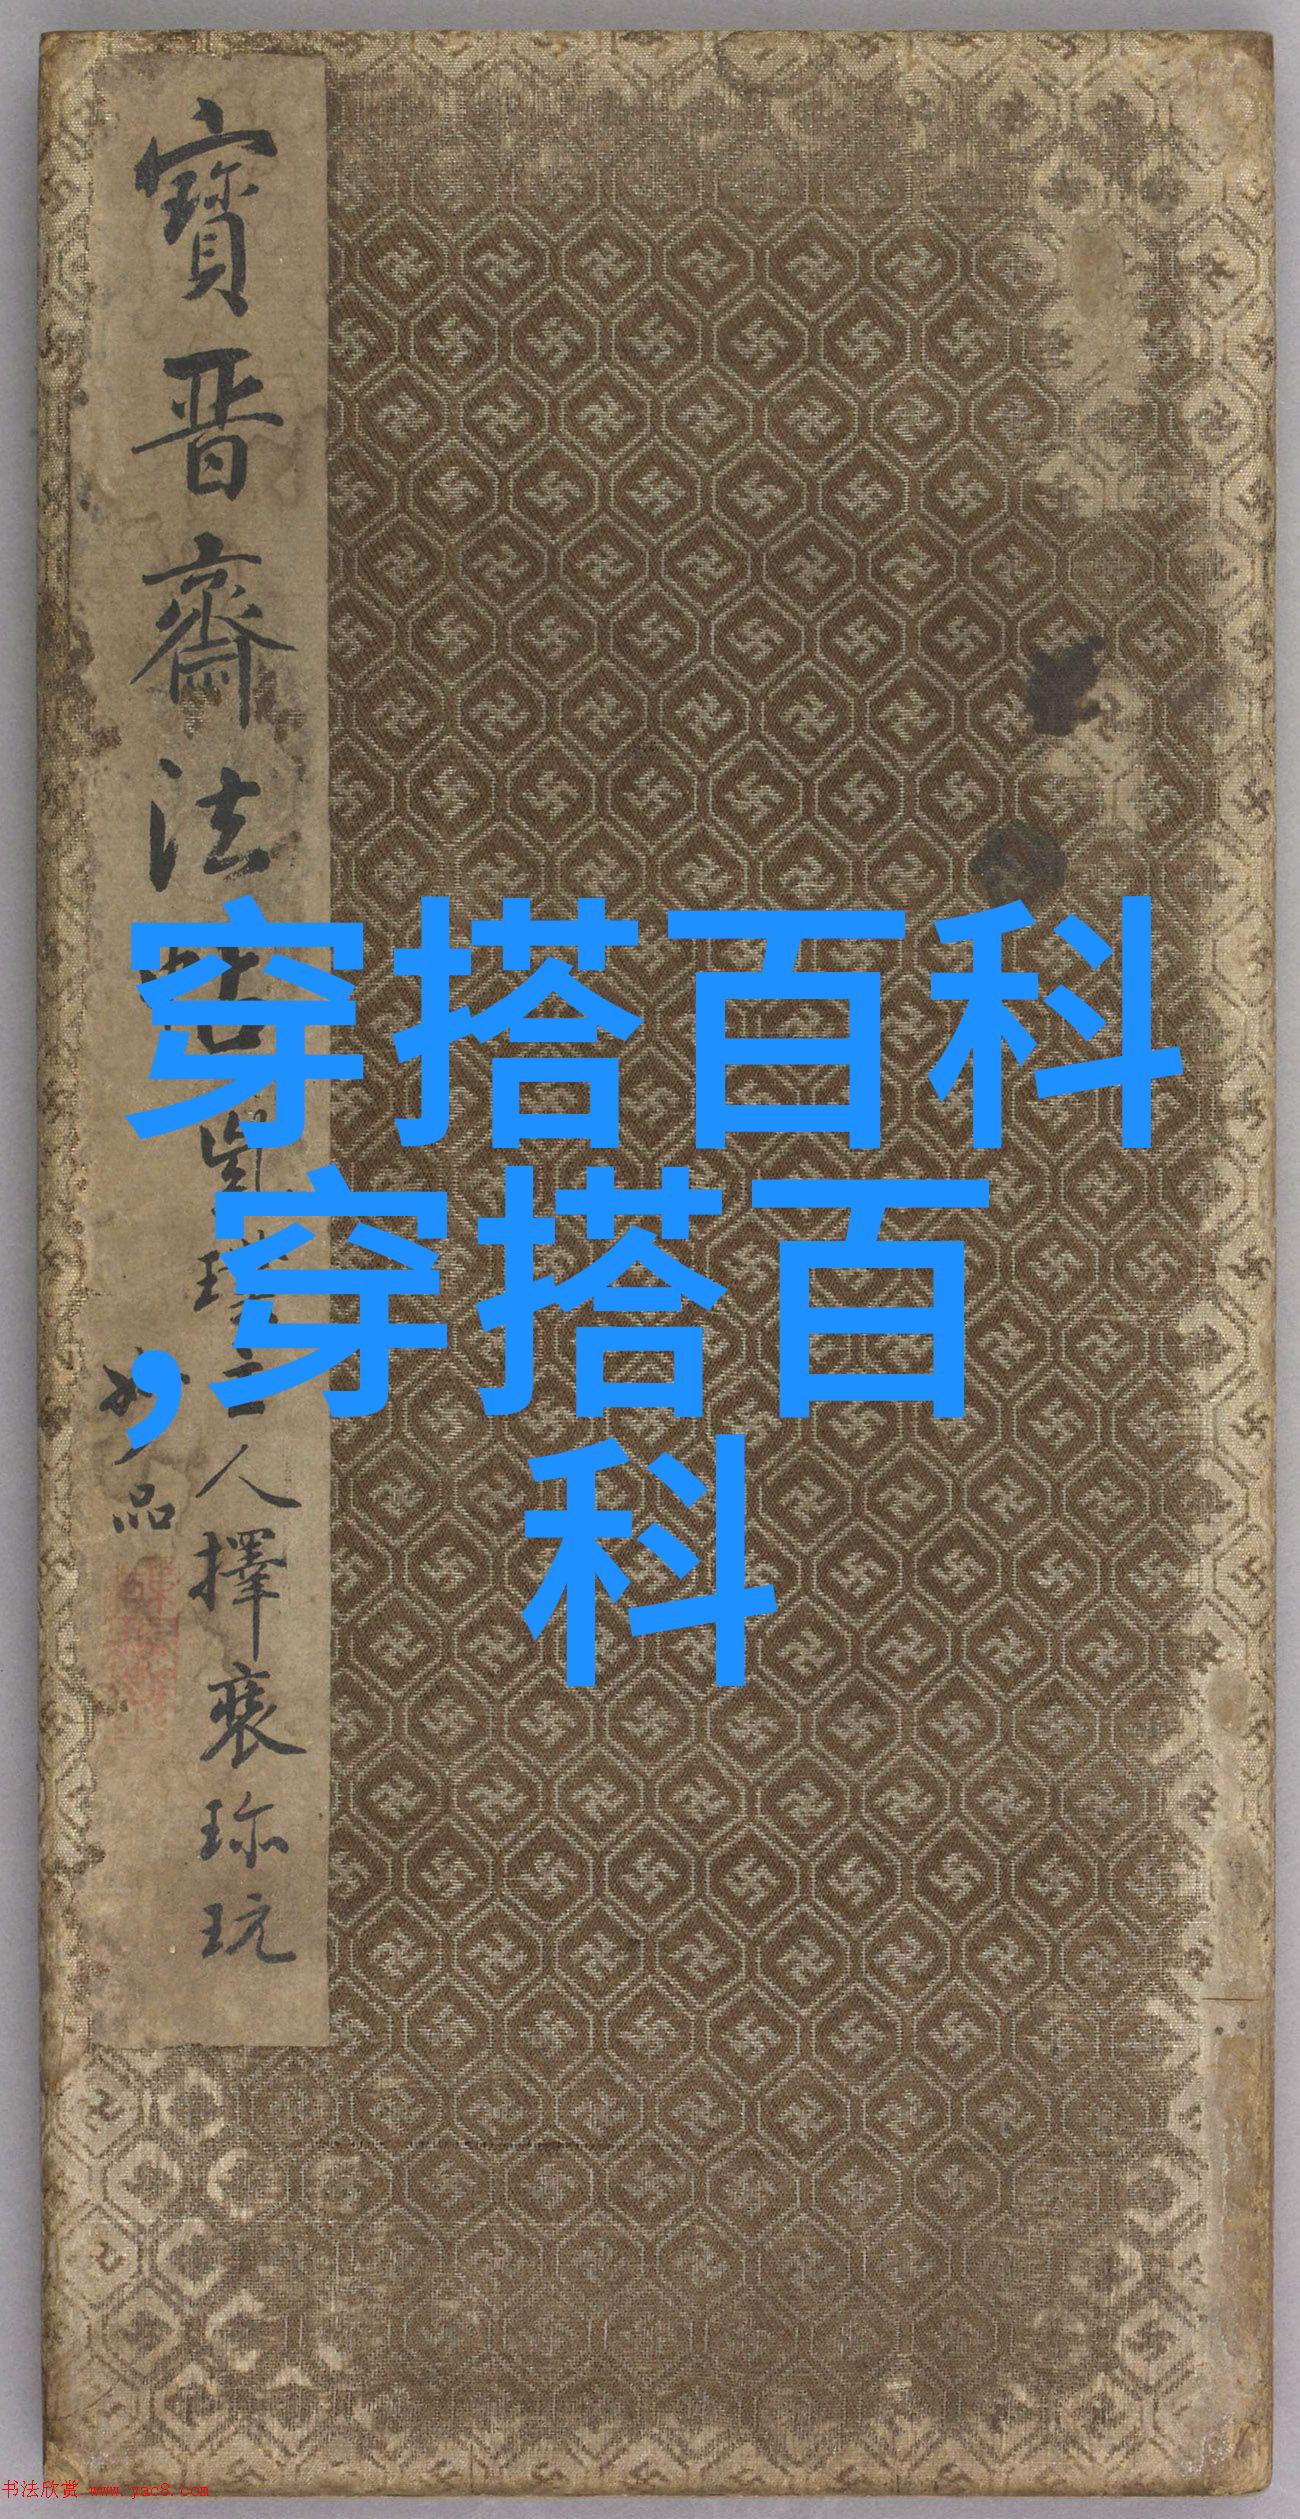 寶晋齋法帖
人擇裘珎玩
妙品
穿搭百科
,穿搭百
科
书法欣赏 www.yac8.com